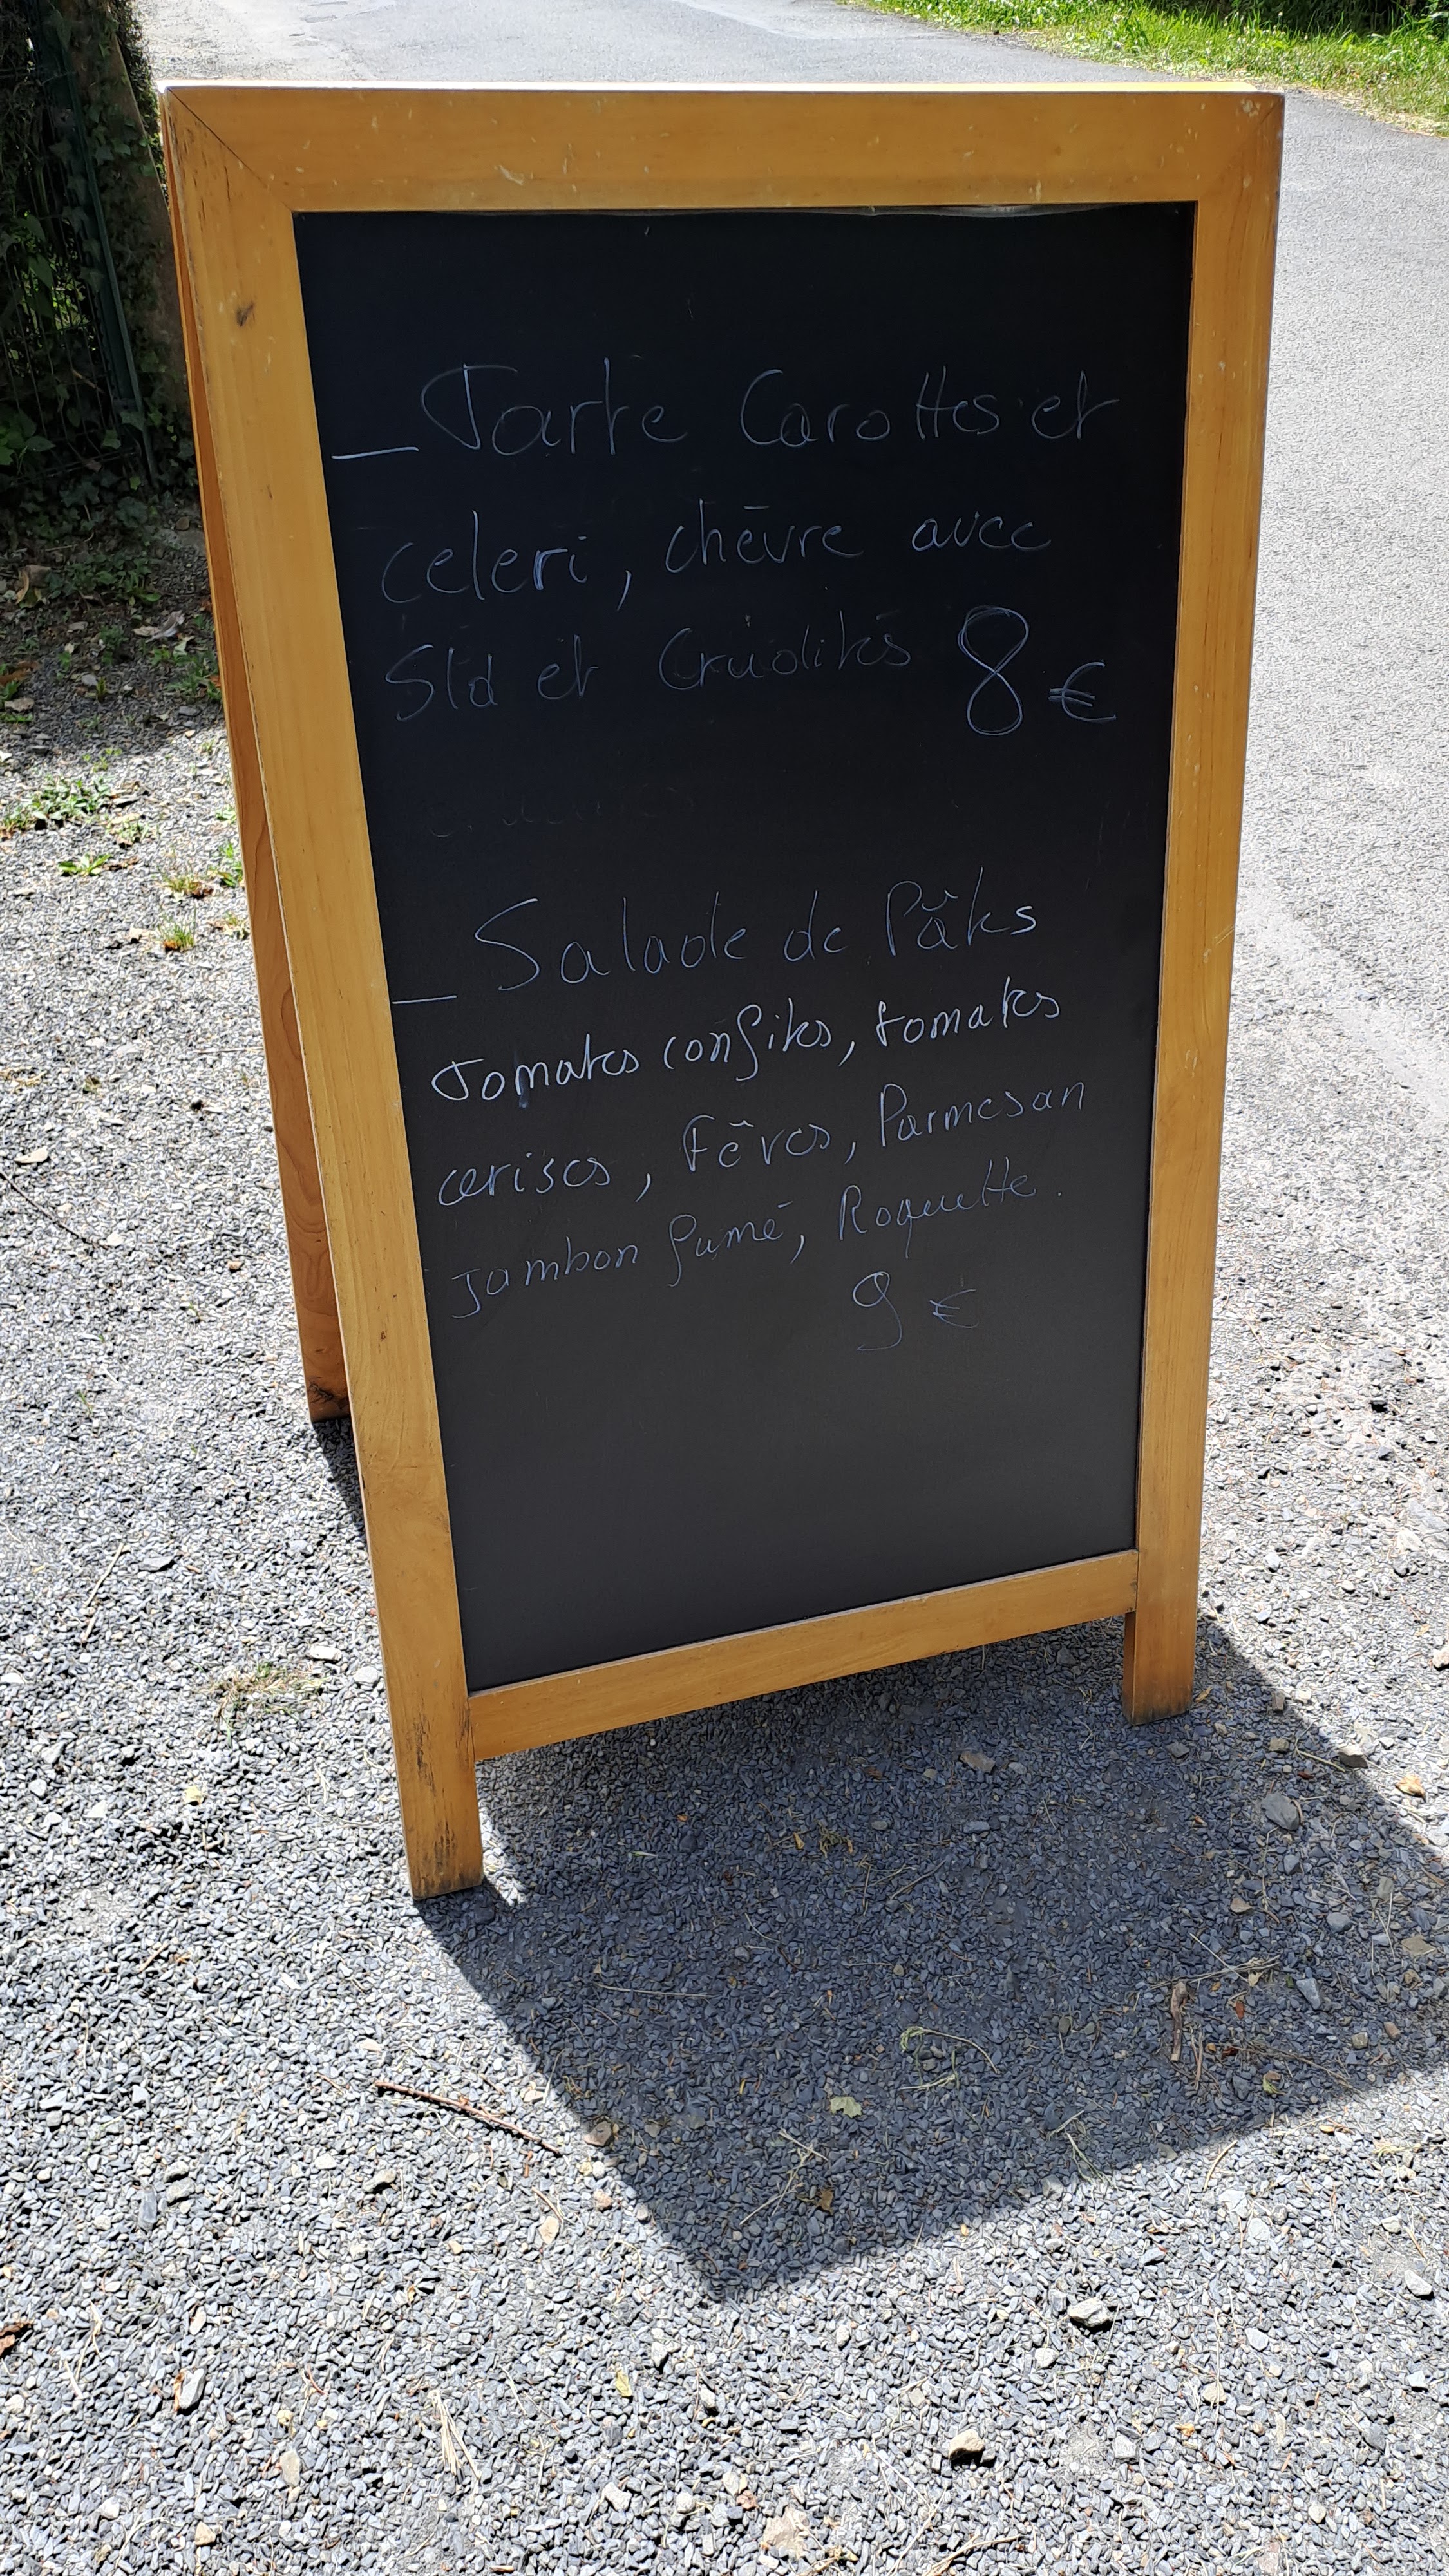 _ Tarte Carottes et
celeri, chèvre avec
Sld et Crudités 8 €
_ Salade de Pâtes
Tomates confites, tomates
cerises, Fèves, Parmesan
Jambon fumé, Roquette.
9 €